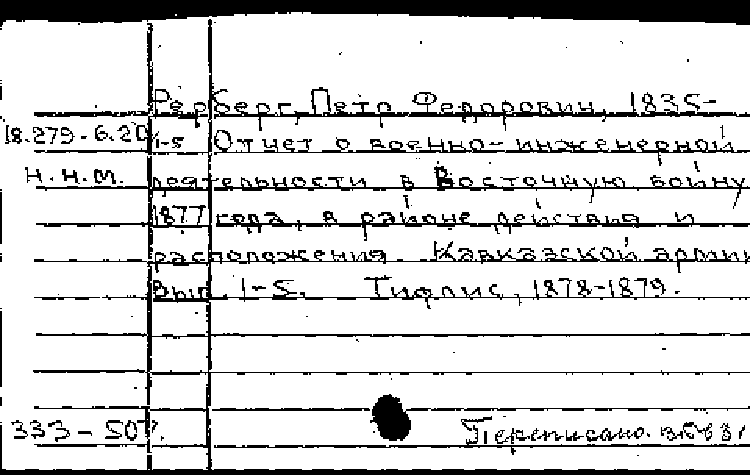 Рерберг, Петр Федорович, 1835-
18.279-6.20 1-5 Отчет о военно-инженерной
Н.Н.М. деятельности в Восточную войну
1877 года, в районе действия и
расположения Кавказской армии
Вып. 1-5. Тифлис, 1878-1879.
333-507.
Переписано.